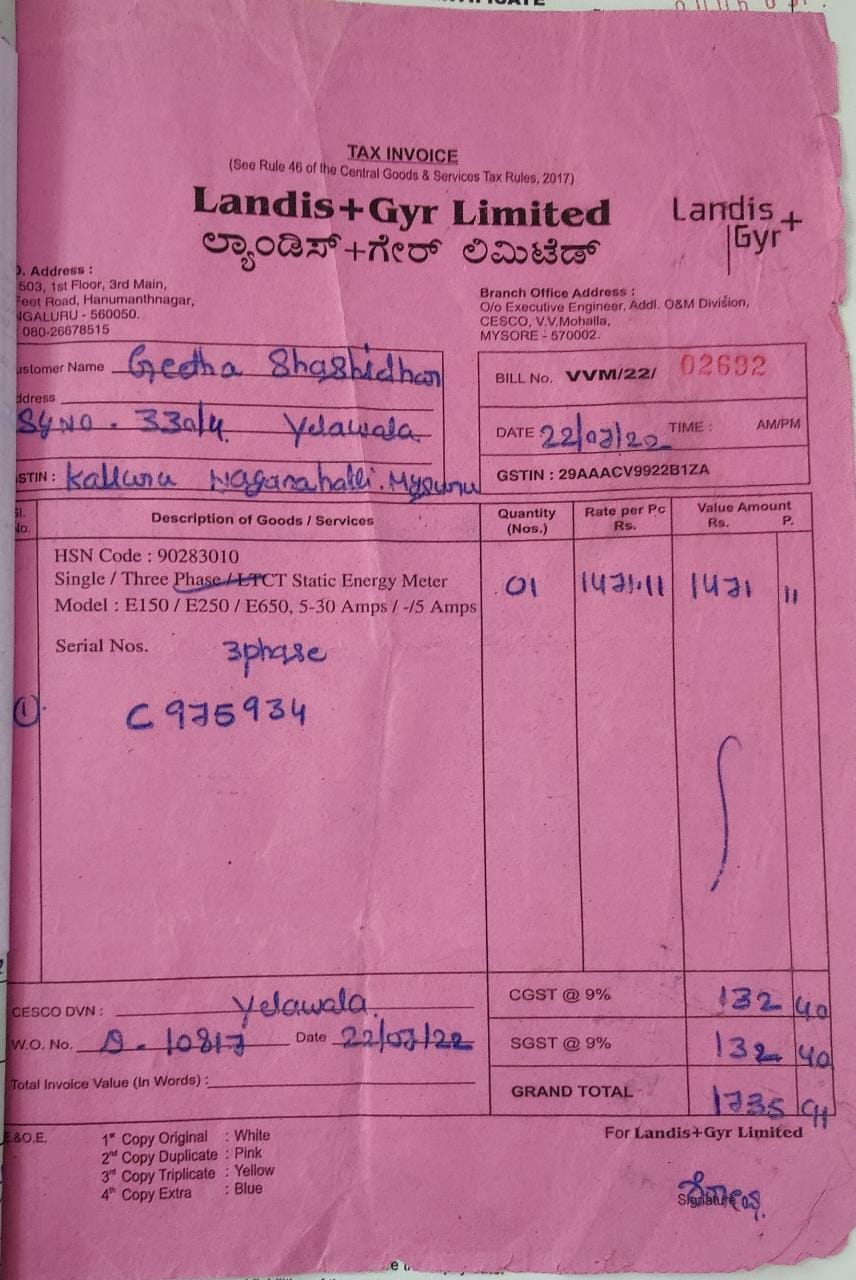 TAX INVOICE
(See Rule 46 of the Central Goods & Services Tax Rules, 2017)
Landis+Gyr Limited
ಲ್ಯಾಂಡಿಸ್+ಗೇರ್ ಲಿಮಿಟೆಡ್
Landis
Gyr+
O. Address :
503, 1st Floor, 3rd Main,
Feet Road, Hanumanthnagar,
NGALURU - 560050.
080-26678515
Branch Office Address :
O/o Executive Engineer, Addl. O&M Division,
CESCO, V.V.Mohalla,
MYSORE - 570002.
ustomer Name Geetha Shashidhar
ddress
Sy No. 330/4. Yelawala
STIN : Kalluru Naganahalli. Mysuru
BILL No. VVM/22/ 02692
DATE 22/07/22 TIME : AM/PM
GSTIN : 29AAACV9922B1ZA
Sl. No. Description of Goods / Services Quantity (Nos.) Rate per Pc Rs. Value Amount Rs. P.
HSN Code : 90283010
Single / Three Phase / LTCT Static Energy Meter 01 1471.11 1471 11
Model : E150 / E250 / E650, 5-30 Amps / -/5 Amps
Serial Nos. 3phase
1 C975934
CESCO DVN : Yelawala.
W.O. No. D - 10817 Date 22/07/22
Total Invoice Value (In Words) :
CGST @ 9% 132 40
SGST @ 9% 132 40
GRAND TOTAL 1735 91
E.&O.E.
1st Copy Original : White
2nd Copy Duplicate : Pink
3rd Copy Triplicate : Yellow
4th Copy Extra : Blue
For Landis+Gyr Limited
Signature